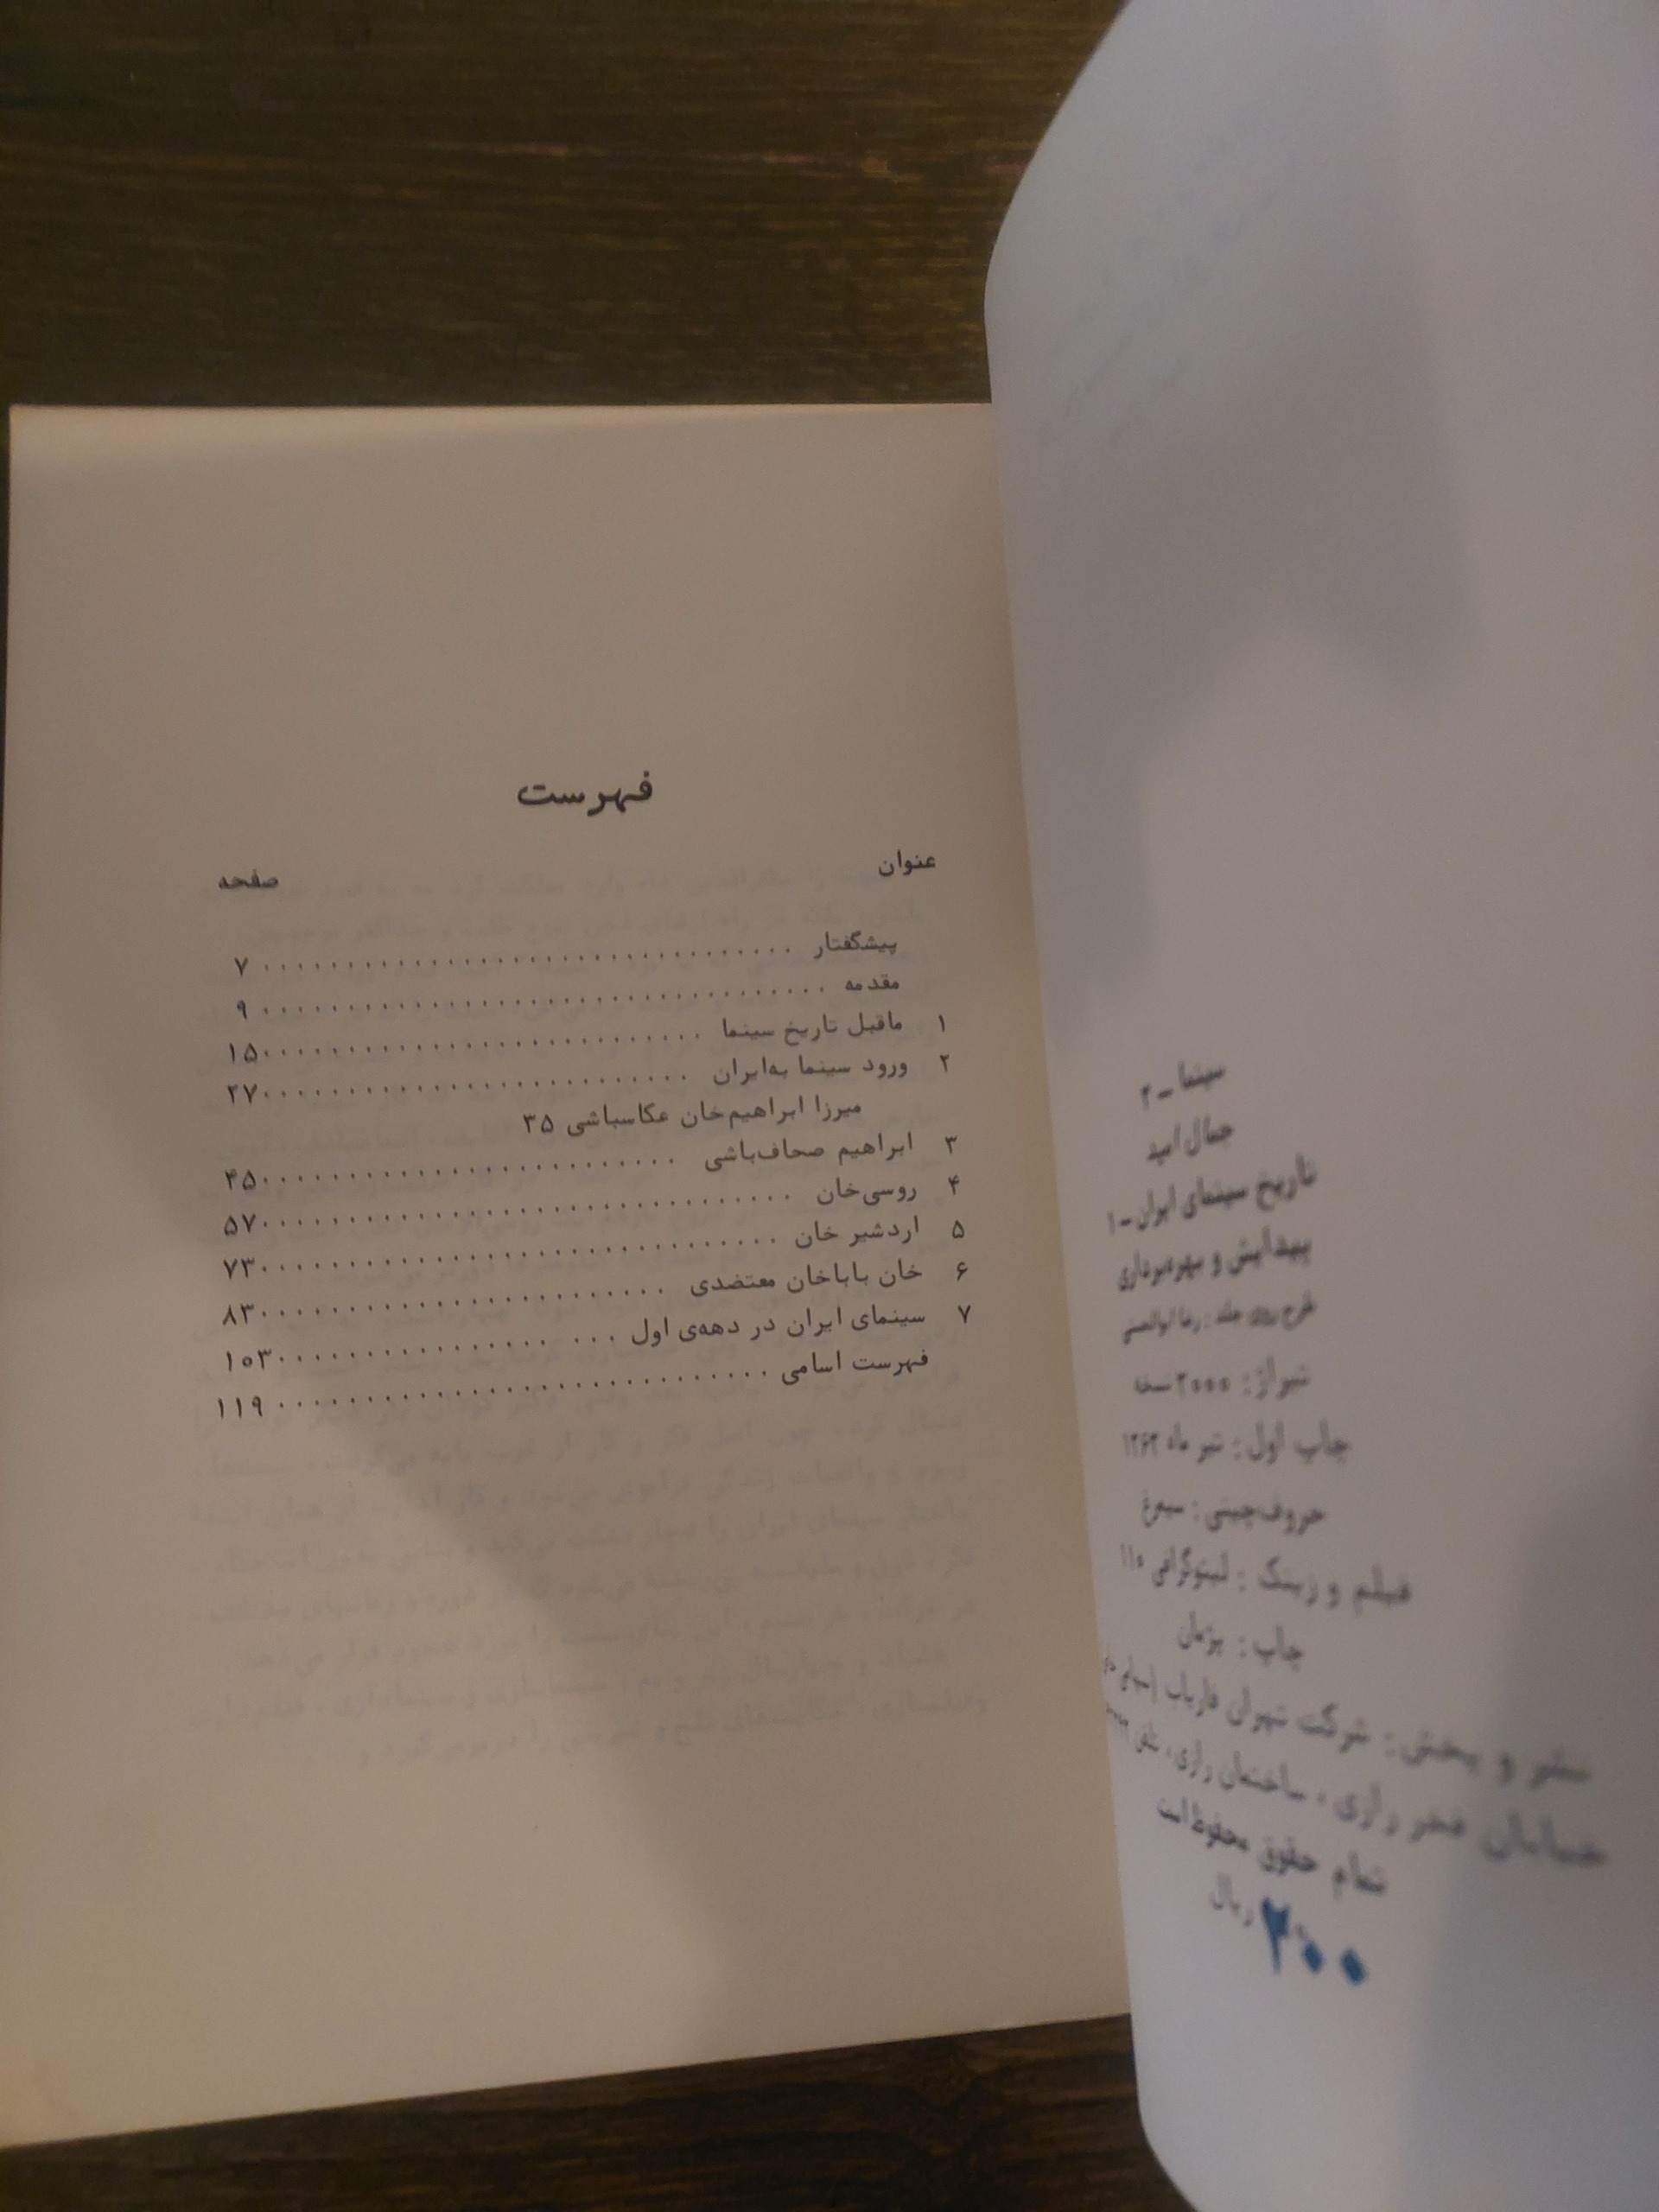 سینما ـ ۲
جمال امید
تاریخ سینمای ایران ـ ۱
پیدایش و بهره‌برداری
طرح روی جلد : رضا ابوالحسنی
تیراژ : ۳۰۰۰ نسخه
چاپ اول : تیر ماه ۱۳۶۳
حروف‌چینی : سیمرغ
فیلم و زینک : لیتوگرافی ۱۱۰
چاپ : پژمان
نشر و پخش : شرکت تهران فاریاب
خیابان فخر رازی ، ساختمان رازی، تلفن
تمام حقوق محفوظ است
۲۰۰ ریال
فهرست
عنوان صفحه
پیشگفتار ۷
مقدمه ۹
۱ ماقبل تاریخ سینما ۱۵
۲ ورود سینما به‌ایران ۲۷
میرزا ابراهیم‌خان عکاسباشی ۳۵
۳ ابراهیم صحاف‌باشی ۴۵
۴ روسی‌خان ۵۷
۵ اردشیر خان ۷۳
۶ خان باباخان معتضدی ۸۳
۷ سینمای ایران در دهه‌ی اول ۱۰۳
فهرست اسامی ۱۱۹